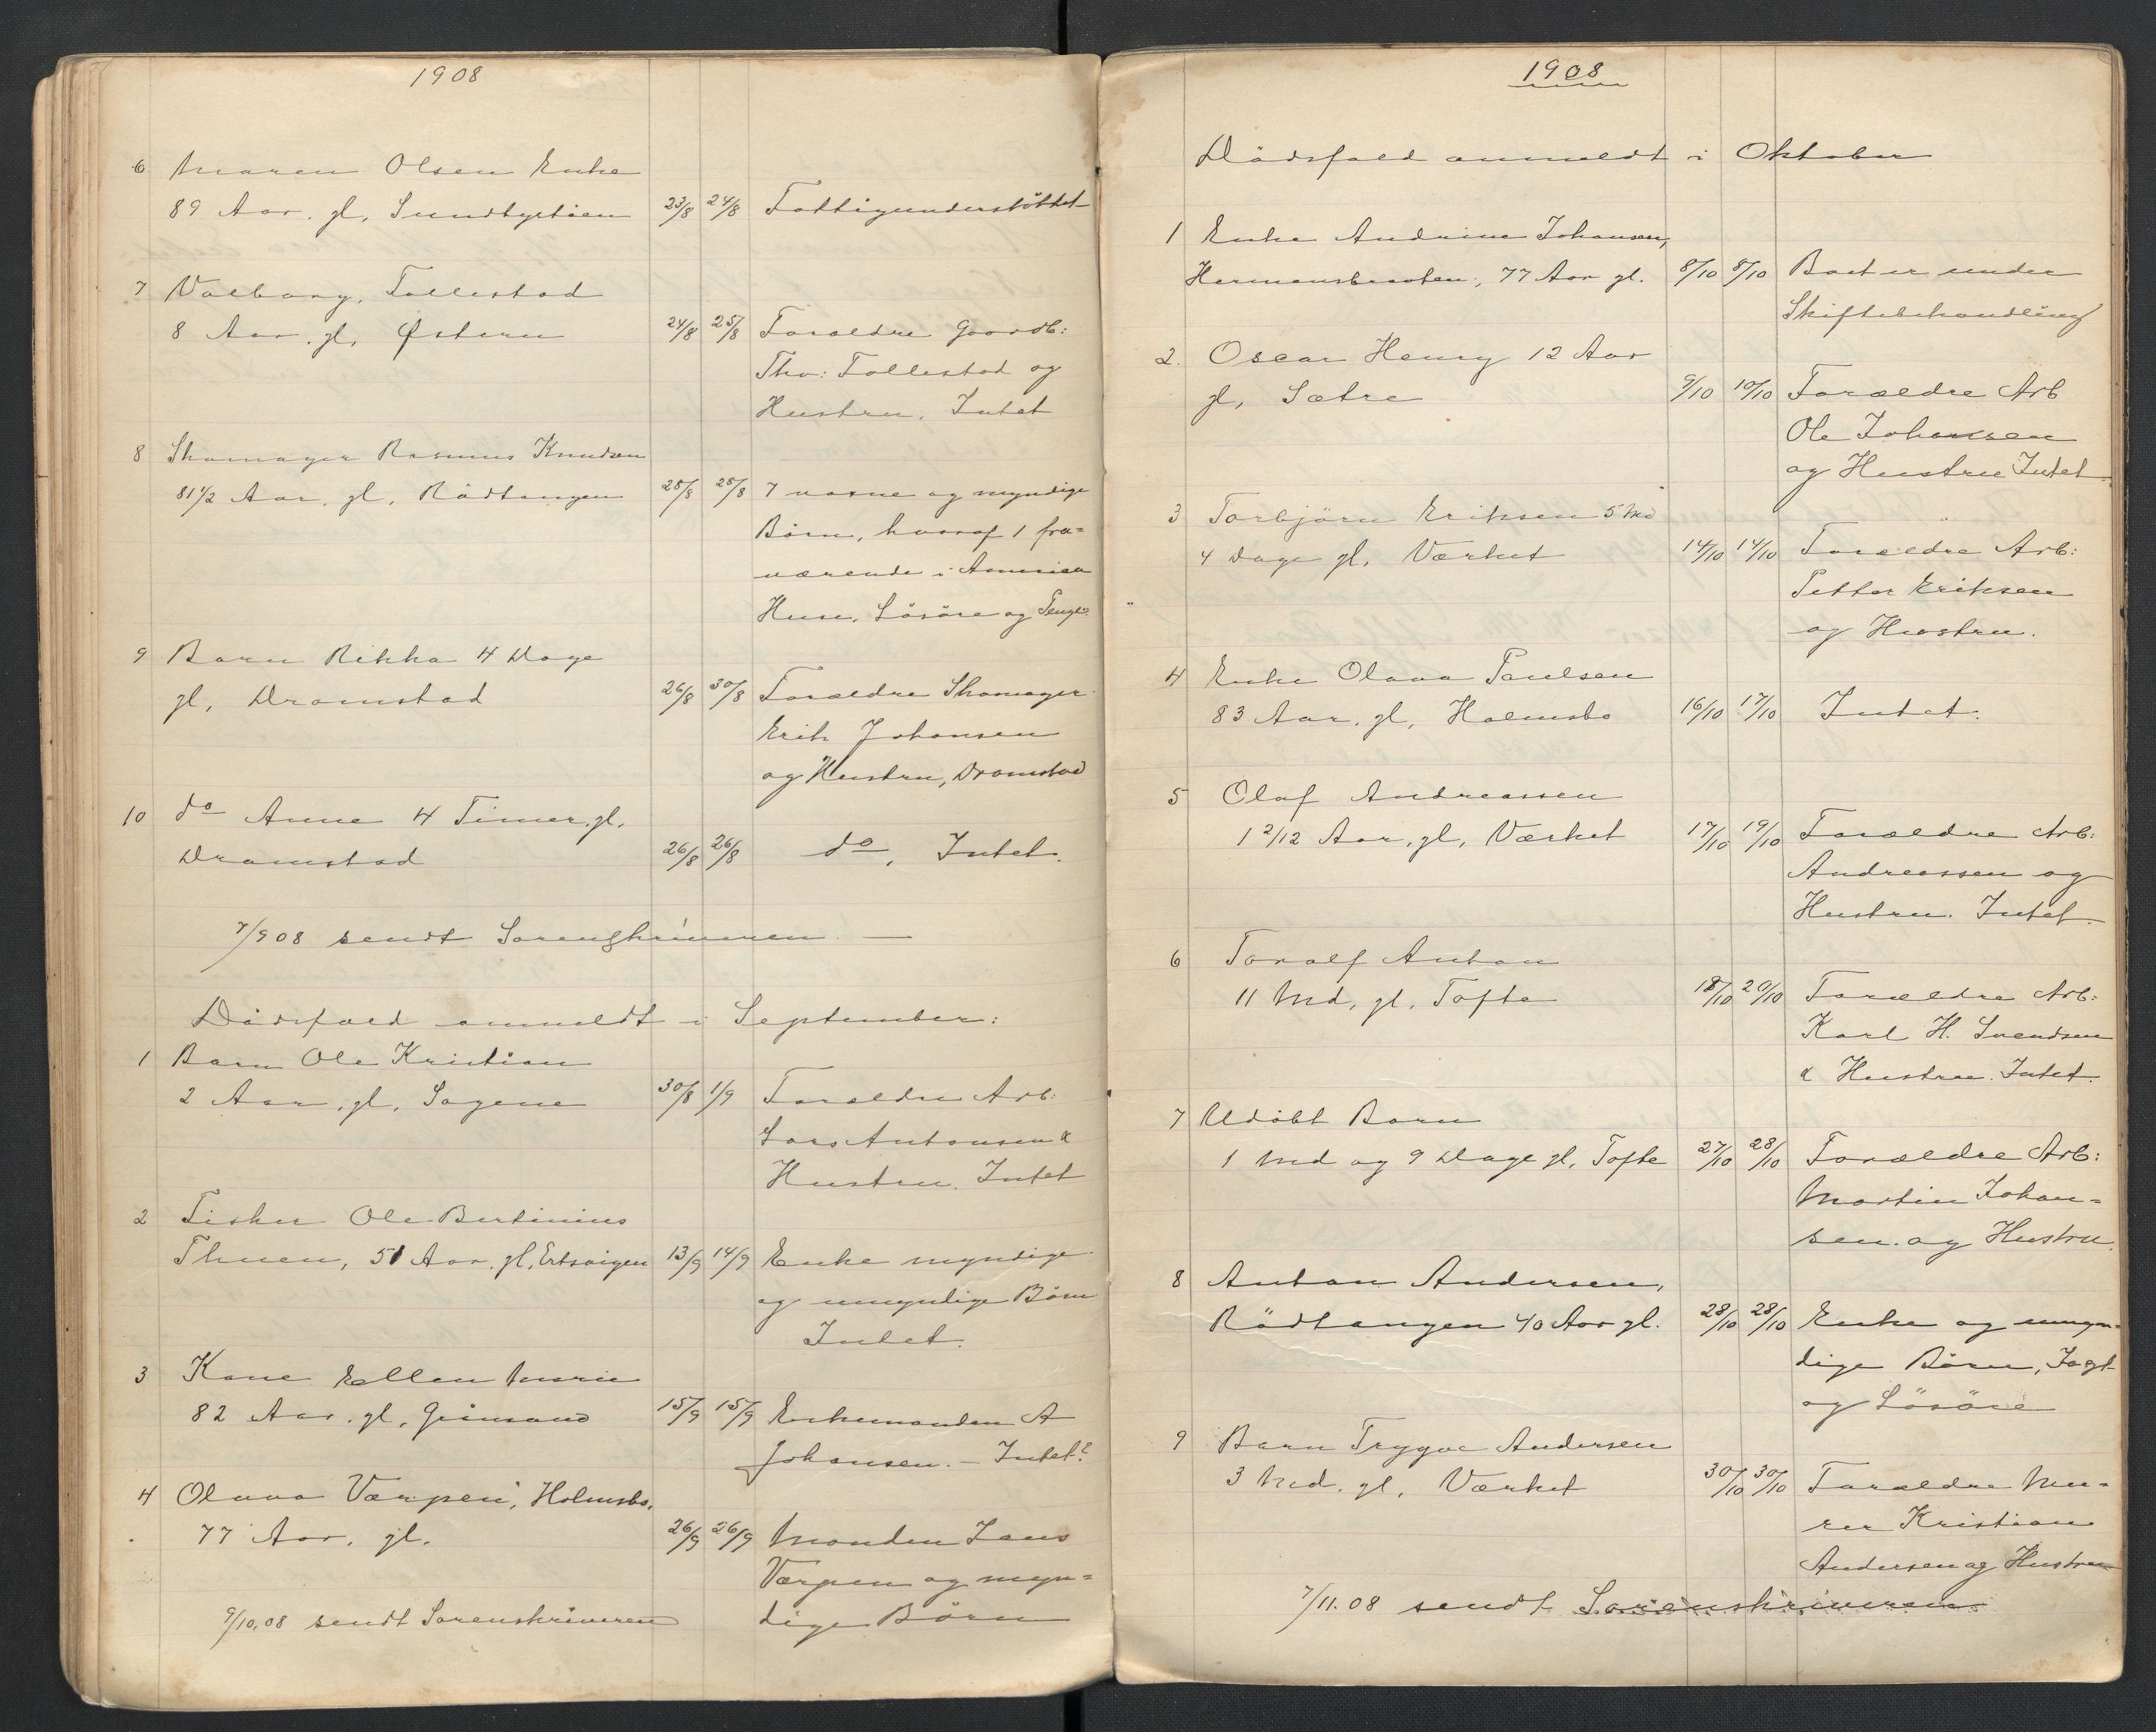 1908
6 Maren Olsen Enke
89 Aar. gl, Sundbystøen 23/8 24/8 Fattigunderstöttet
7 Valborg Follestad
8 Aar. gl, Østern 24/8 25/8 Forældre Gaardb:
Tho: Follestad og
Hustru. Intet
8 Skomager Rasmus Knudsen
81 1/2 Aar. gl, Rødtangen 28/8 28/8 7 voxne og myndige
Börn, hvoraf 1 fra=
værende i America
Huse, Lösöre og Penge
9 Barn Rikka 4 Dage
gl, Dramstad 26/8 30/8 Forældre Skomager
Erik Johansen
og Hustru, Dramstad
10 do Anne 4 Timer gl.
Dramstad 26/8 26/8 do, Intet.
7/9 08 sendt Sorenskriveren
Dödsfald anmeldt i September:
1 Barn Ole Kristian
2 Aar. gl. Sagene 30/8 1/9 Forældre Arb:
Lars Antonsen &
Hustru. Intet
2 Fisker Ole Bertinius
Thuen, 51 Aar. gl, 13/9 14/9 Enke myndige
og umyndige Börn
Intet.
3 Kone Ellen Marie
82 Aar. gl, Grimsand 15/9 15/9 Enkemanden A
Johansen. - Intet?
4 Olava Værpen, Holmsbo.
77 Aar. gl. 26/9 26/9 Manden Jans
Værpen og myn=
dige Börn
9/10.08 sendt Sorenskriveren
1908
Dödsfald anmeldt i Oktober
1 Enke Andrine Johansen,
Hermansbraaten, 77 Aar gl. 8/10 8/10 Boet er under
Skiftebehandling
2. Oscar Henry 12 Aar
gl, Sætre 9/10 10/10 Forældre Arb
Ole Johansen
og Hustru Intet.
3 Torbjörn Eriksen 5 Md
4 Dage gl, Værket 14/10 14/10 Forældre Arb:
Petter Eriksen
og Hustru.
4 Enke Olava Paulsen
83 Aar. gl, Holmsbo 16/10 17/10 Intet.
5 Olaf Andreassen
1 2/12 Aar. gl, Værket 17/10 19/10 Forældre Arb:
Andreassen og
Hustru. Intet.
6 Toralf Anton
11 Md, gl, Tofte 18/10 20/10 Forældre Arb:
Karl H. Svendsen
& Hustru. Intet.
7 Udöbt Barn
1 Md og 9 Dage gl, Tofte 27/10 28/10 Forældre Arb:
Martin Johan=
sen. og Hustru.
8 Anton Andersen,
Rödtangen 40 Aar gl. 28/10 28/10 Enke og umyn=
dige Börn, Jagt
og Lösöre
9 Barn Trygve Andersen
3 Md. gl, Værket 30/10 30/10 Forældre Mu=
rer Kristian
Andersen og Hustru
7/11.08 sendt Sorenskriveren